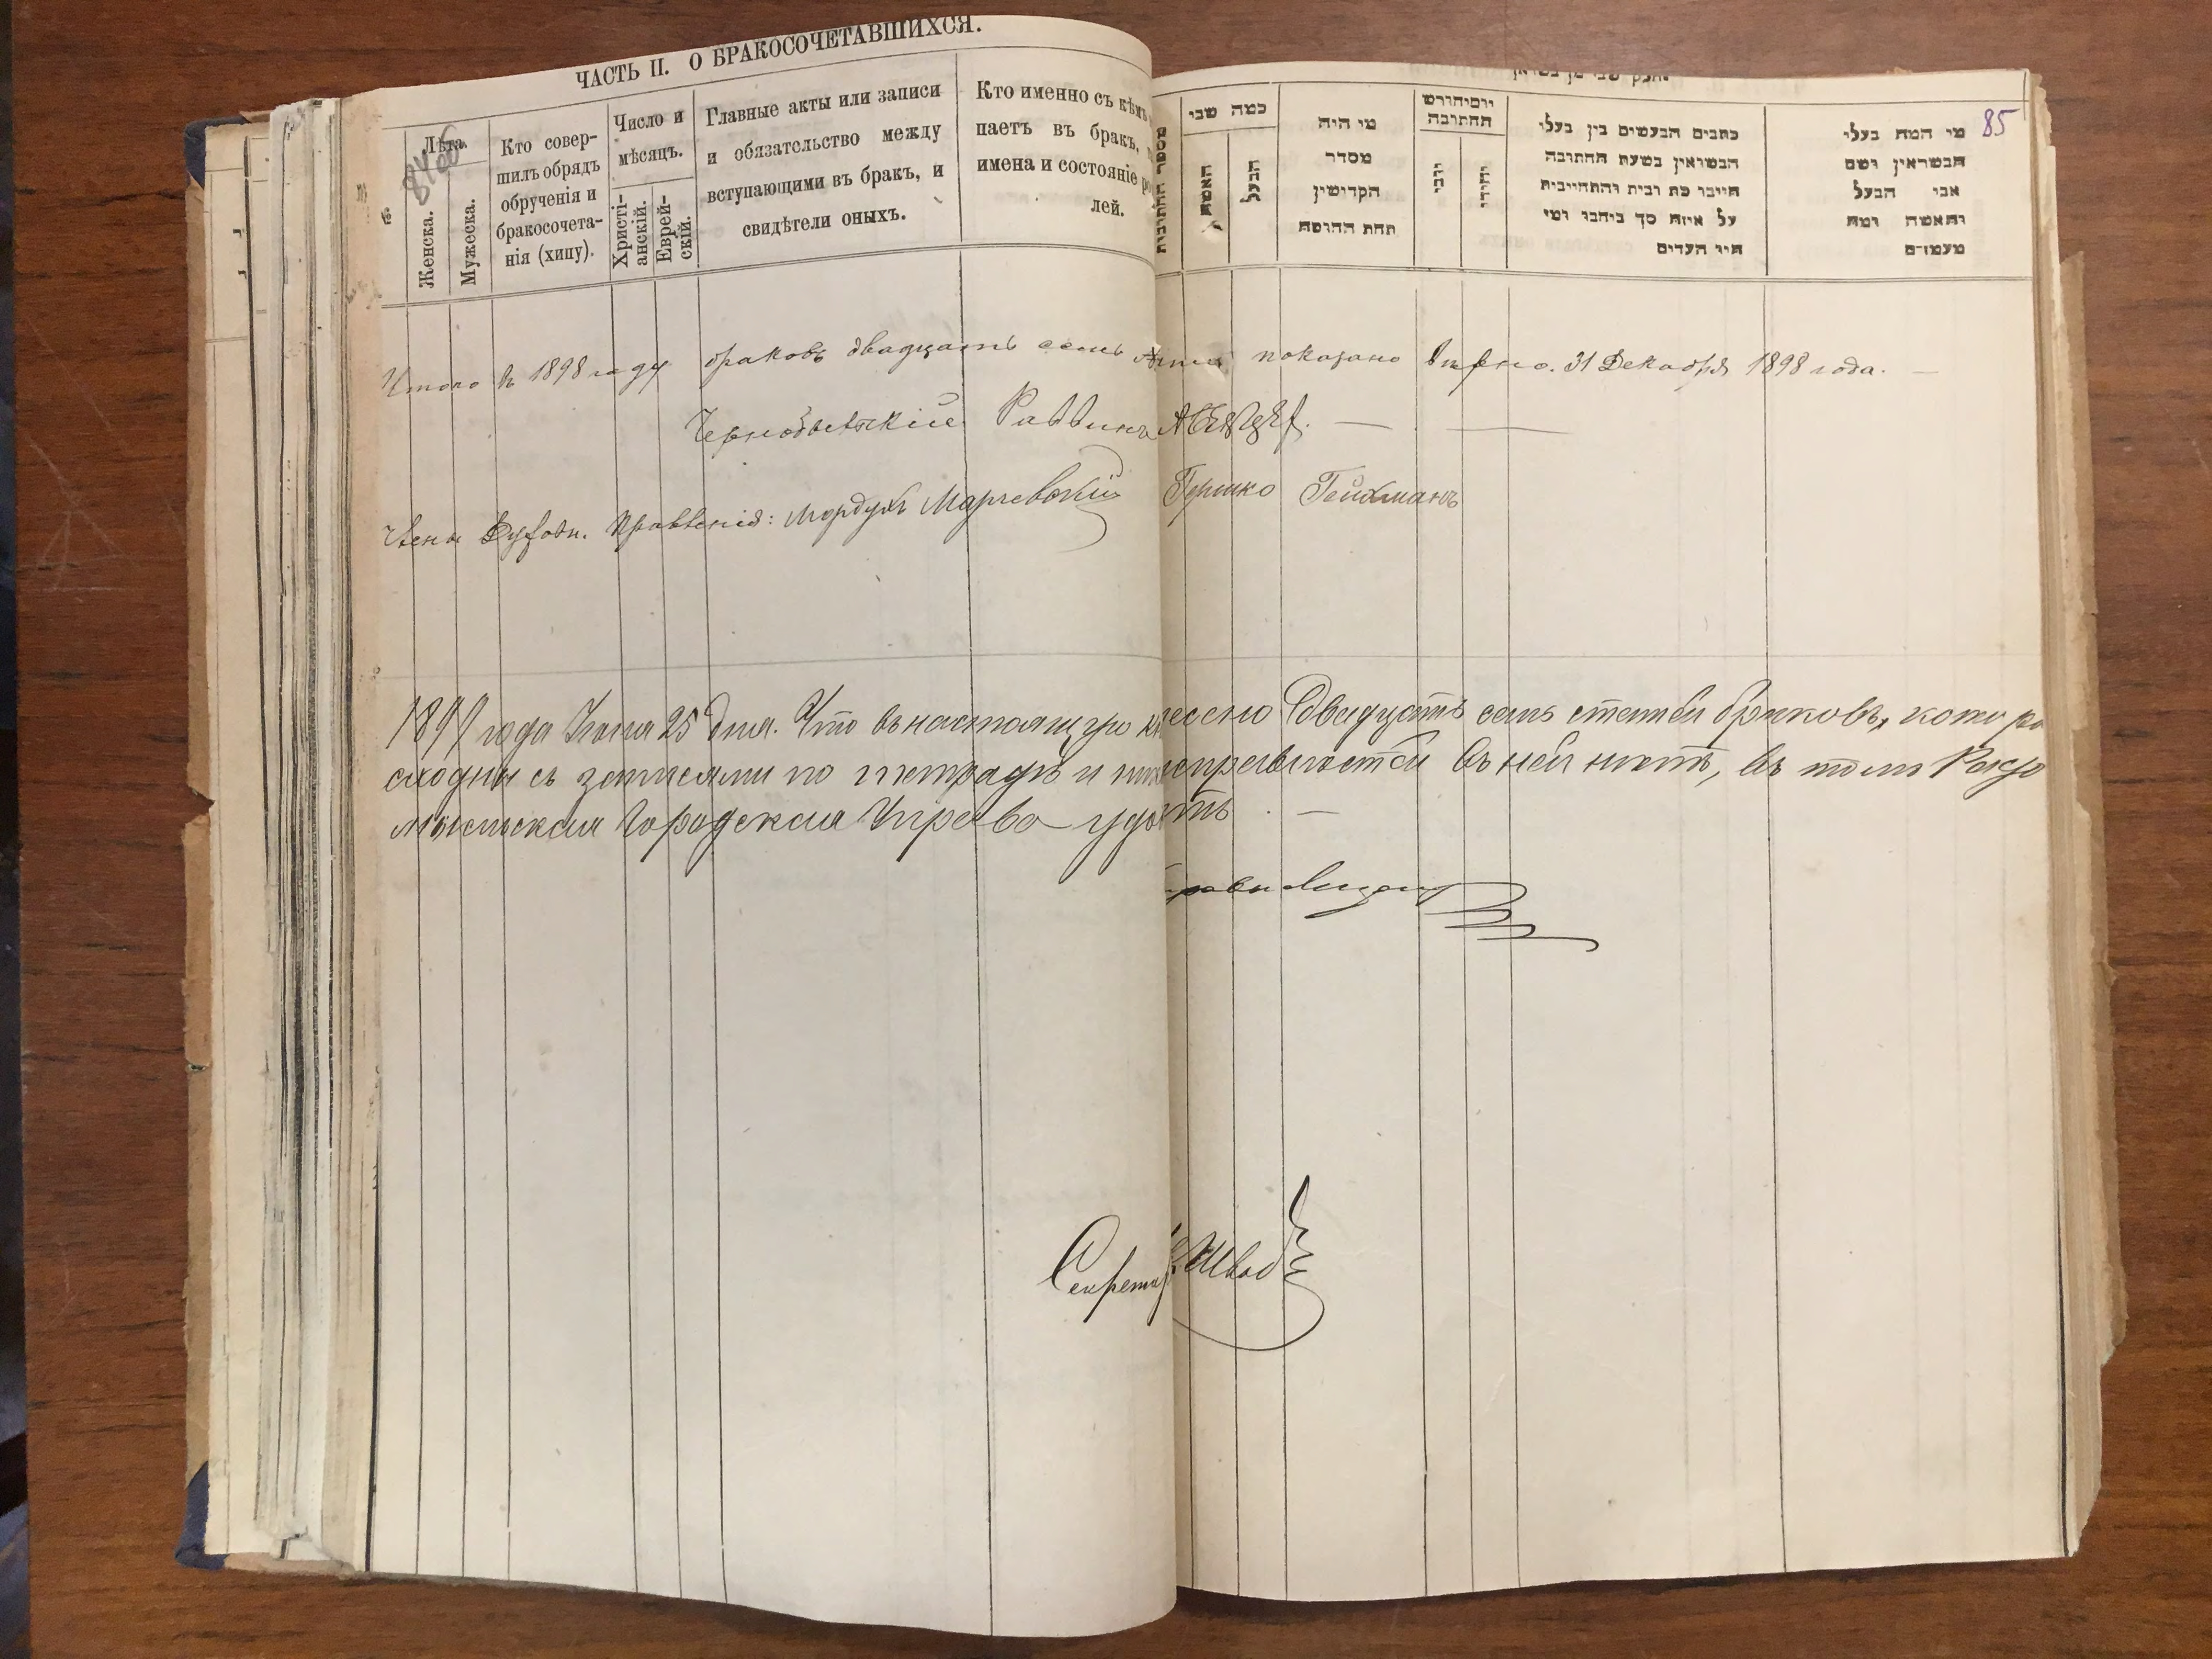 ЧАСТЬ II. О БРАКОСОЧЕТАВШИХСЯ.
Лѣта.
Женска.
Мужеска.
Кто совер-
шилъ обрядъ
обрученія и
бракосочета-
нія (хипу).
Число и
мѣсяцъ.
Христі-
анскій.
Еврей-
скій.
Главные акты или записи
и обязательство между
вступающими въ бракъ, и
свидѣтели оныхъ.
Кто именно съ кѣмъ
паетъ въ бракъ,
имена и состояніе ро
лей.
85
מספר החתונות
כמה שני
האשה
הבעל
מי היה
מסדר
הקדושין
תחת החופה
יום וחודש
החתונה
נוצרי
יהודי
כתבים הנעשים בין בעלי
הנשואין בשעת החתונה
חייבו כת רבית והתחייבית
על איזה סך כיתבו ומי
היו העדים
מי המה בעלי
הנשואין ושם
אבי הבעל
והאשה ומה
מעמדם
Итого въ 1898 году браковъ двадцать семь показано вѣрно. 31 Декабря 1898 года. —
Раввинъ
Члены Духовн. Правленія: Мордухъ Гершко Гейхманъ
1899 года 25 дня. Что въ настоящую кн есено двадцать семь статей браковъ, которы
сходны съ записями по тетрадѣ и исправностей въ ней нѣтъ, въ томъ Радо
мысльская Городская Управа удо ть. —
Секретарь